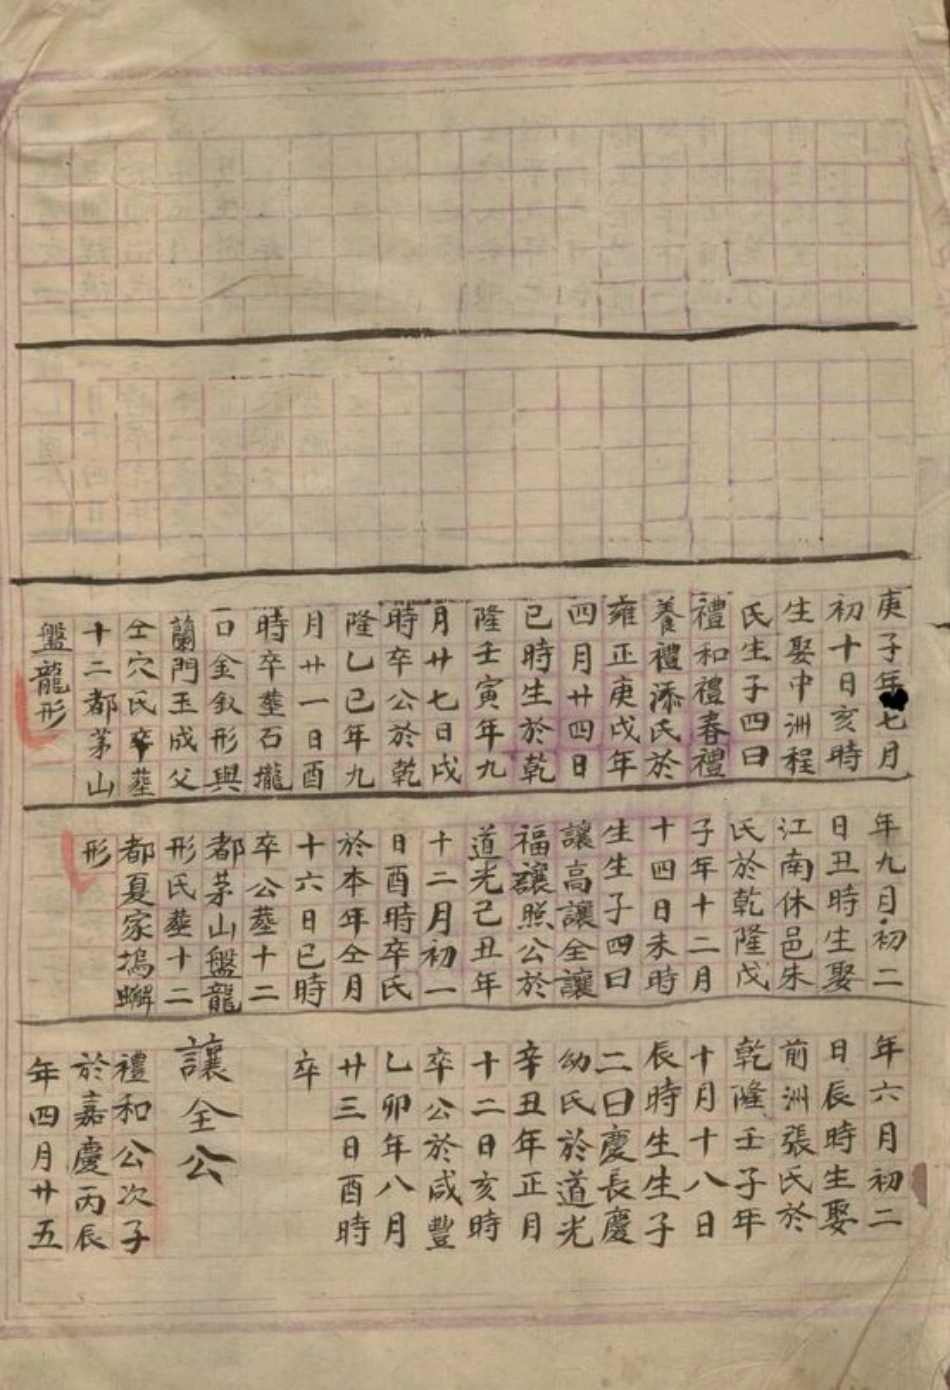 庚子年七月
初十日亥時
生娶中洲程
氏生子四曰
禮和禮春禮
養禮添氏於
雍正庚戌年
四月廿四日
巳時生於乾
隆壬寅年九
月廿七日戌
時卒公於乾
隆乙巳年九
月廿一日酉
時卒塟石壠
口金釵形與
蘭門玉成父
仝穴氏卒塟
十二都茅山
盤龍形
年九月初二
日丑時生娶
江南休邑朱
氏於乾隆戊
子年十二月
十四日未時
生生子四曰
讓高讓全讓
福讓照公於
道光己丑年
十二月初一
日酉時卒氏
於本年仝月
十六日巳時
卒公塟十二
都茅山盤龍
形氏塟十二
都夏家塢螄
形
年六月初二
日辰時生娶
前洲張氏於
乾隆壬子年
十月十八日
辰時生生子
二曰慶長慶
幼氏於道光
辛丑年正月
十二日亥時
卒公於咸豐
乙卯年八月
廿三日酉時
卒
讓全公
禮和公次子
於嘉慶丙辰
年四月廿五